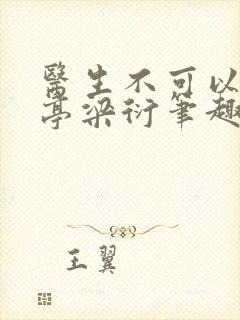 醫生不可以
亭梁衍筆趣
王翼